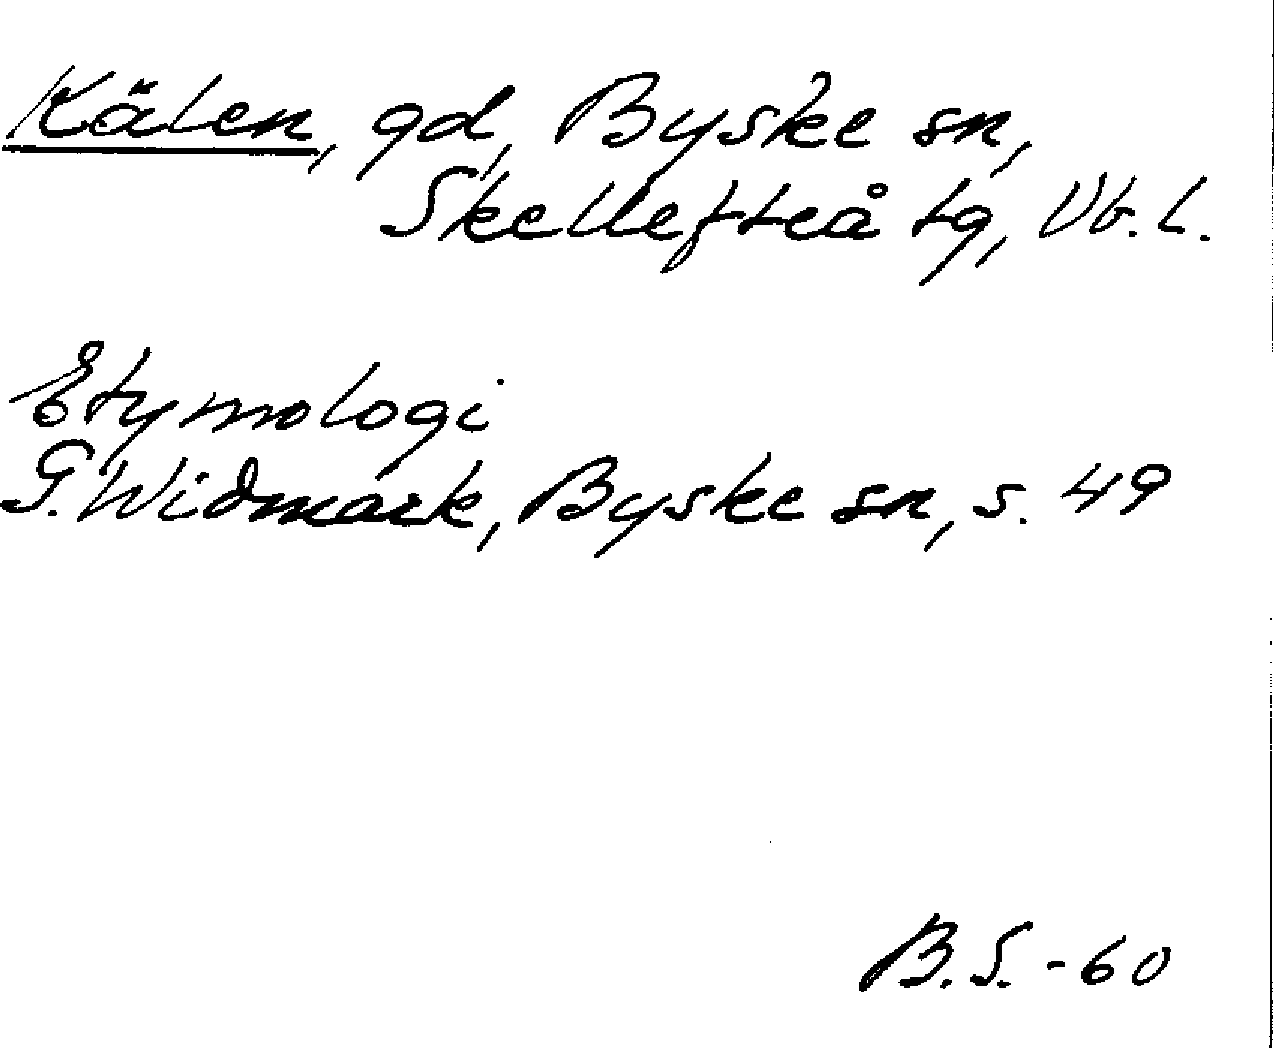 Kälen, gd, Byske sn,
Skellefteå tg, Vb. l.
Etymologi
G. Widmark, Byske sn, s. 49
B.S. -60